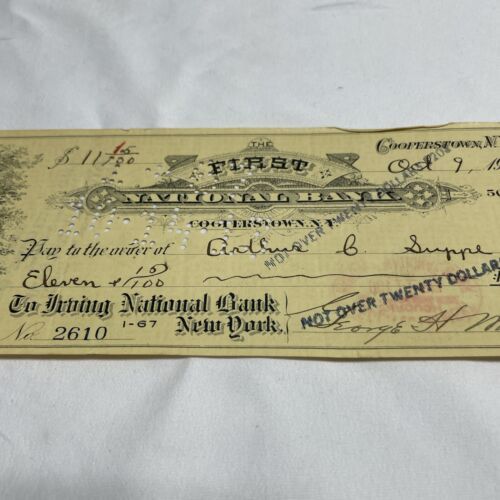 $ 11 15/100 THE COOPERSTOWN, N.Y.
FIRST Oct 9, 19
NATIONAL BANK
COOPERSTOWN, N.Y.
NOT OVER TWENTY DOLLARS
Pay to the order of Arthur C. Suppe
Eleven & 15/100
To Irving National Bank
NOT OVER TWENTY DOLLARS
No. 2610 1-67 New York. George H.